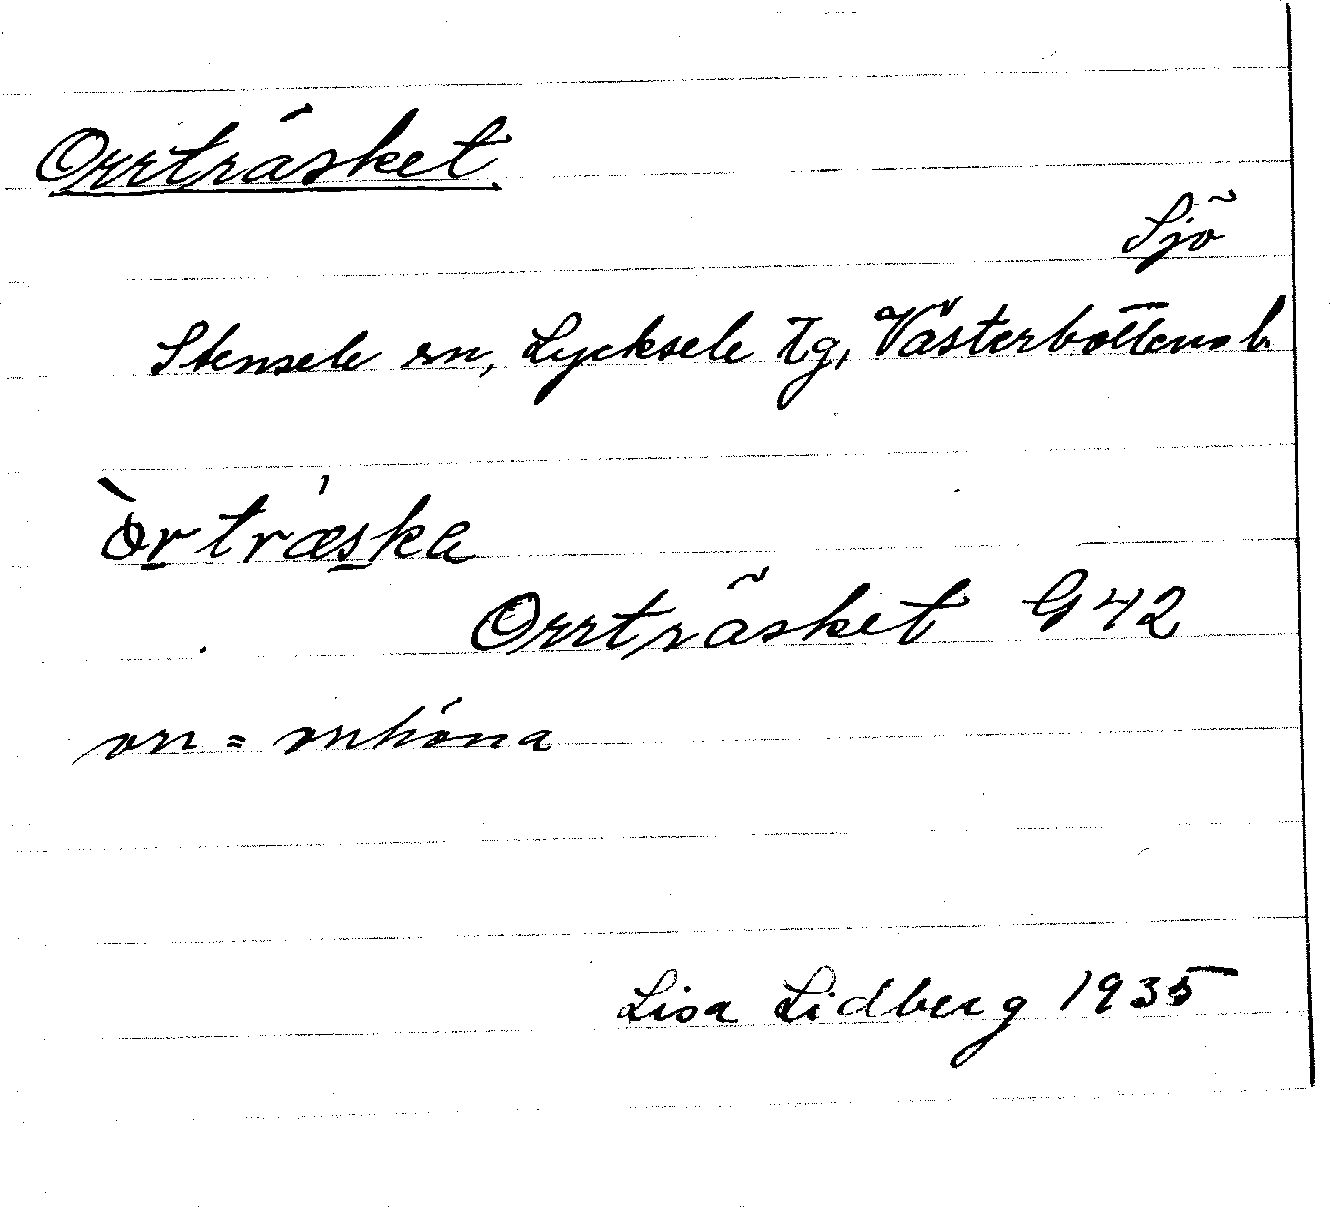 Orrträsket
Sjö
Stensele sn, Lycksele Tg, Västerbottens l.
òrtræska
Orrträsket G 42
orr = orrhöna
Lisa Lidberg 1935